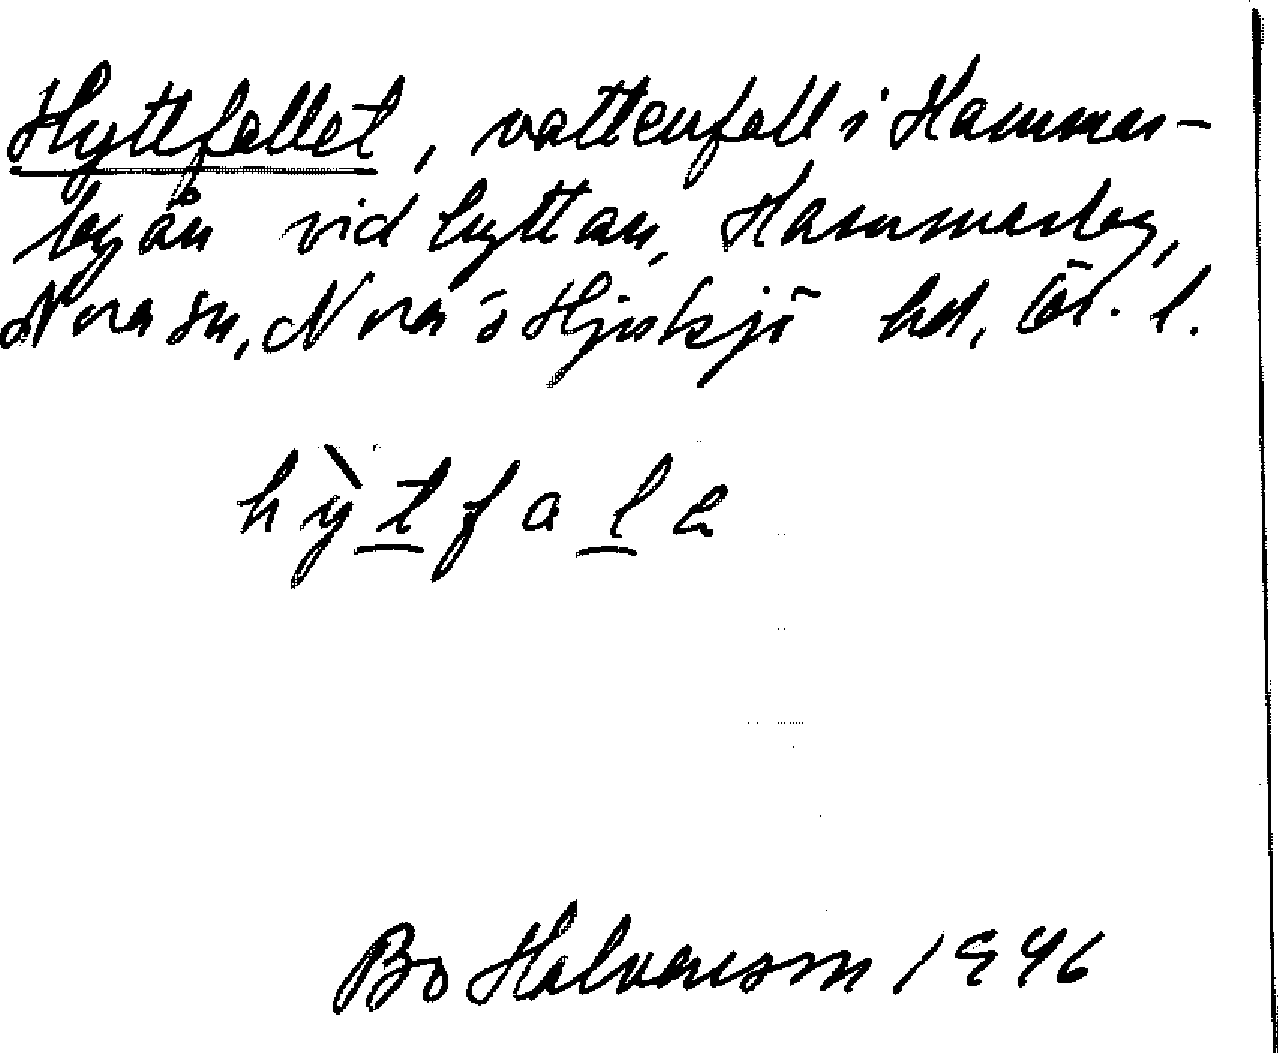 Hyttfallet, vattenfall i Hammar-
byån vid hyttan, Hammarby,
Nora sn, Nora o Hjulsjö hd, Ör. l.
hỳtfala
Bo Halvarsson 1946